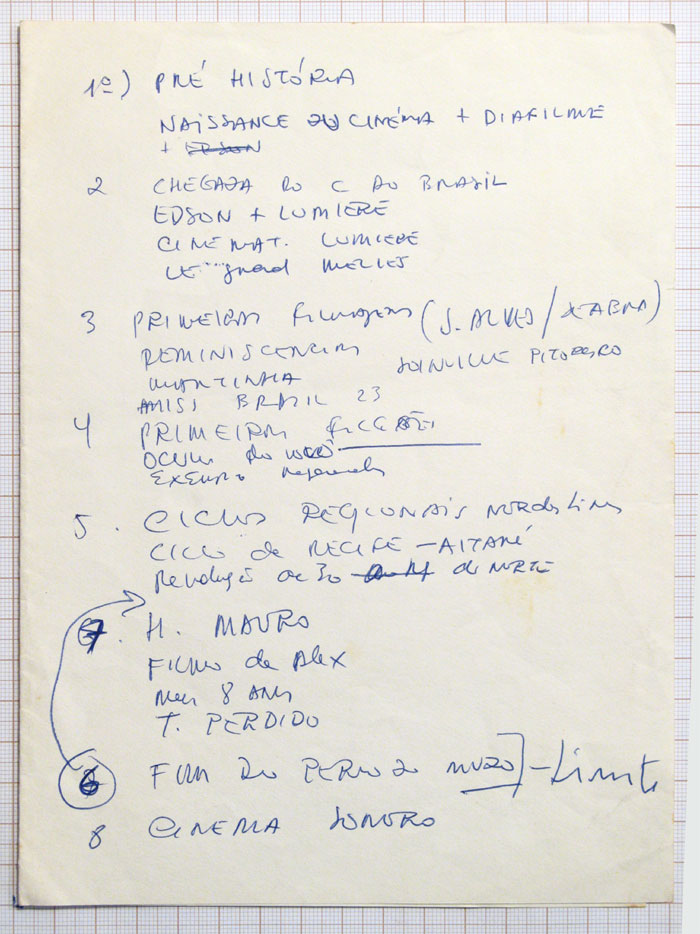 1º) PRÉ HISTÓRIA
NAISSANCE DU CINÉMA + DIAFILME
+ EDSON
2 CHEGADA DO C AO BRASIL
EDSON + LUMIERE
CINEMAT. LUMIERE
LE grand MELIES
3 PRIMEIRAS FILMAGENS (S. ALVES/
REMINISCENCIAS JOINVILLE PITORESCO
MISS BRASIL 23
4 PRIMEIRAS FICCÕES
EXEMPLO
5. CICLOS REGIONAIS nordestinos
CICLO de RECIFE - AITARÉ
Revolução de 30 do NORTE
7. H. MAURO
FILHO de Alex
Meus 8 ANOS
T. PERDIDO
6 FIM DO PERIODO MUDO - Limite
8 CINEMA SONORO